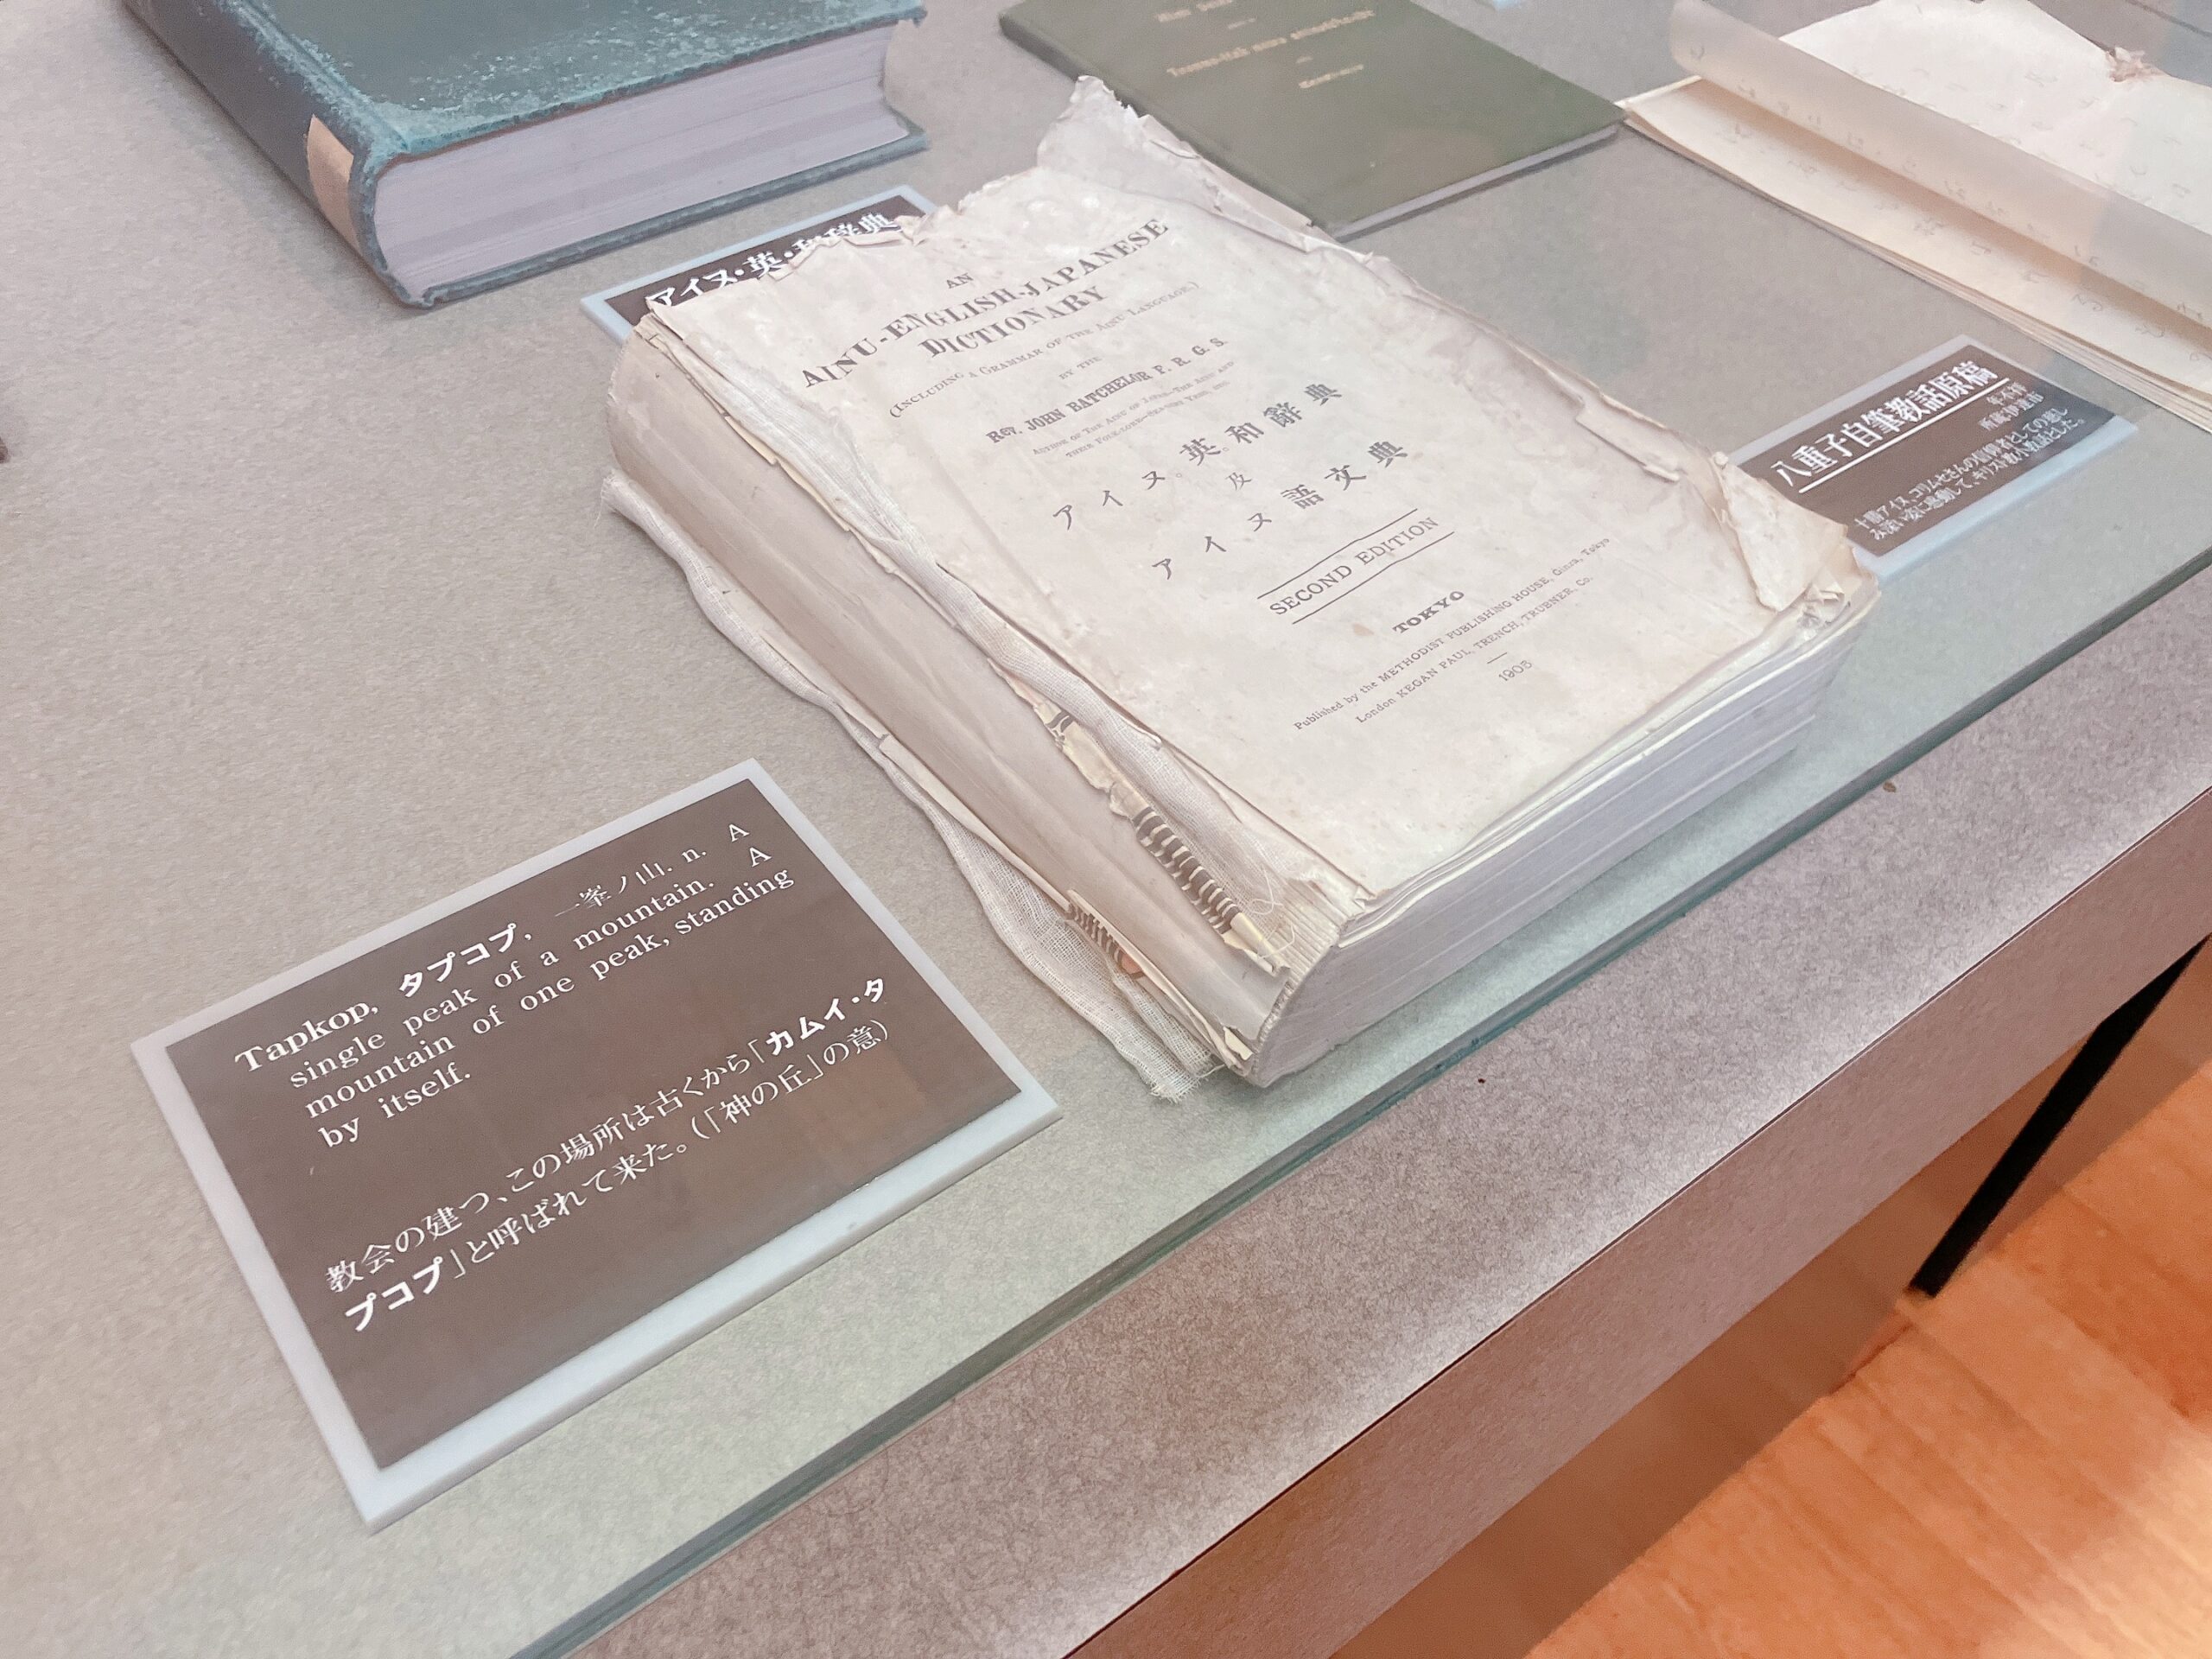 アイヌ・英・和辞典
AN
AINU-ENGLISH-JAPANESE
DICTIONARY
(INCLUDING A GRAMMAR OF THE AINU LANGUAGE.)
BY THE
Rev. JOHN BATCHELOR F. R. G. S.
AUTHOR OF THE AINU OF JAPAN,—THE AINU AND
THEIR FOLK-LORE—
アイヌ。英。和辭典
及
アイヌ語文典
SECOND EDITION
TOKYO
Published by the METHODIST PUBLISHING HOUSE, Ginza, Tokyo
London KEGAN PAUL, TRENCH, TRUBNER, Co.
1905
八重子自筆教話原稿
年不祥
十勝アイヌ、コリムセさんの信仰者としての悲し
み深い姿に感動して、キリスト教小教話とした。
Tapkop, タプコプ, 一峯ノ山. n. A
single peak of a mountain. A
mountain of one peak, standing
by itself.
教会の建つ、この場所は古くから「カムイ・タ
プコプ」と呼ばれて来た。(「神の丘」の意)